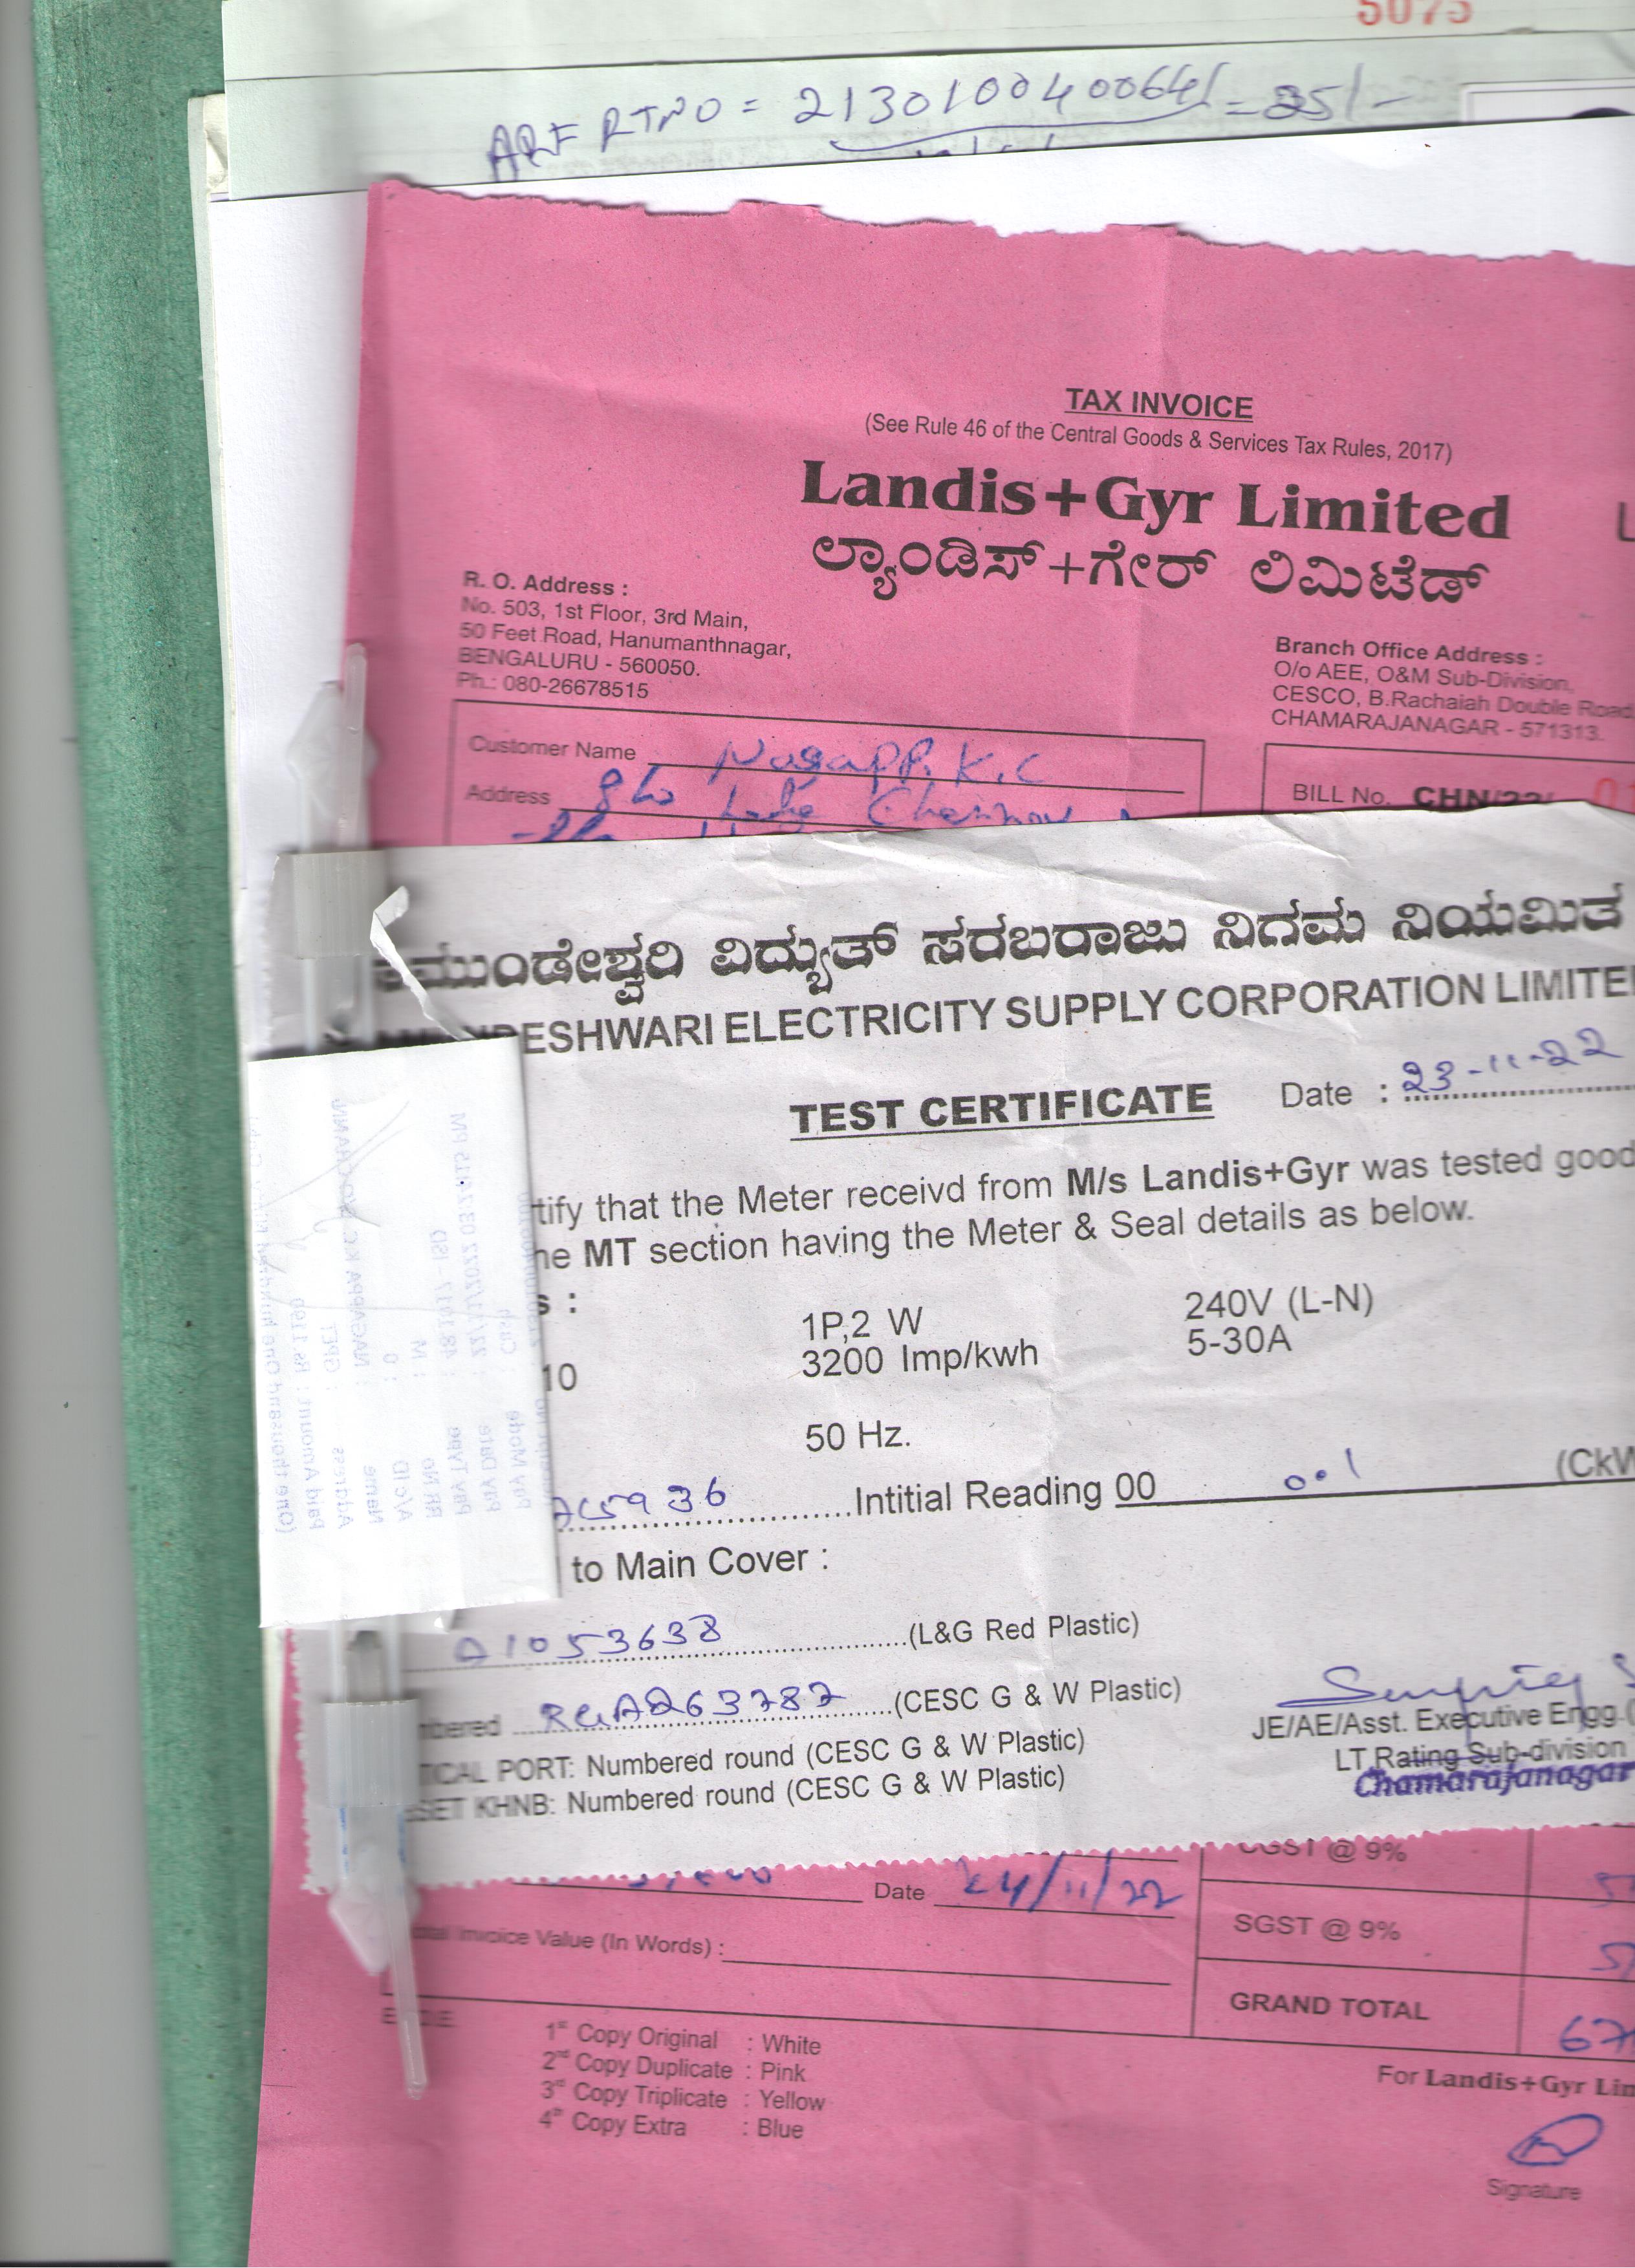 5075
ARF RTNO = 21301004006641 = 25/-
TAX INVOICE
(See Rule 46 of the Central Goods & Services Tax Rules, 2017)
Landis+Gyr Limited
L
ಲ್ಯಾಂಡಿಸ್+ಗೇರ್ ಲಿಮಿಟೆಡ್
R. O. Address :
No. 503, 1st Floor, 3rd Main,
50 Feet Road, Hanumanthnagar,
BENGALURU - 560050.
Ph.: 080-26678515
Branch Office Address :
O/o AEE, O&M Sub-Division,
CESCO, B.Rachaiah Double Road
CHAMARAJANAGAR - 571313.
Customer Name Nagappa K.C
Address
BILL No. CHN/22/ 01
ಮುಂಡೇಶ್ವರಿ ವಿದ್ಯುತ್ ಸರಬರಾಜು ನಿಗಮ ನಿಯಮಿತ
ESHWARI ELECTRICITY SUPPLY CORPORATION LIMITE
TEST CERTIFICATE Date : 23-11-22
tify that the Meter receivd from M/s Landis+Gyr was tested good
he MT section having the Meter & Seal details as below.
s :
1P,2 W 240V (L-N)
10 3200 Imp/kwh 5-30A
50 Hz.
5936 Intitial Reading 00 0.1 (CkW
to Main Cover :
A1053638 (L&G Red Plastic)
mbered 263787 (CESC G & W Plastic)
TICAL PORT: Numbered round (CESC G & W Plastic)
SET KHNB: Numbered round (CESC G & W Plastic)
JE/AE/Asst. Executive Engg.(
LT Rating Sub-division
Chamarajanagar
Paid Amount : Rs.1190
Address : GPET
Name : NAGAPPA K.C S/O CHANN
A/c ID : 0
RR No : IM
Pay Type
Pay Date : 22/11/2022
Pay Mode : Cash
CGST @ 9%
Date 24/11/22
SGST @ 9%
Invoice Value (In Words) :
GRAND TOTAL 67
1st Copy Original : White
2nd Copy Duplicate : Pink
3rd Copy Triplicate : Yellow
4th Copy Extra : Blue
For Landis+Gyr Lim
Signature